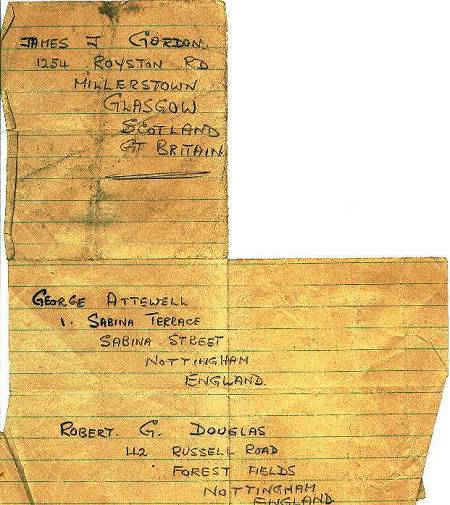 JAMES J GORDON.
1254 ROYSTON RD
MILLERSTOWN
GLASGOW
SCOTLAND
GT BRITAIN
GEORGE ATTEWELL
1. SABINA TERRACE
SABINA STREET
NOTTINGHAM
ENGLAND.
ROBERT. G. DOUGLAS
42 RUSSELL ROAD
FOREST FIELDS
NOTTINGHAM
ENGLAND